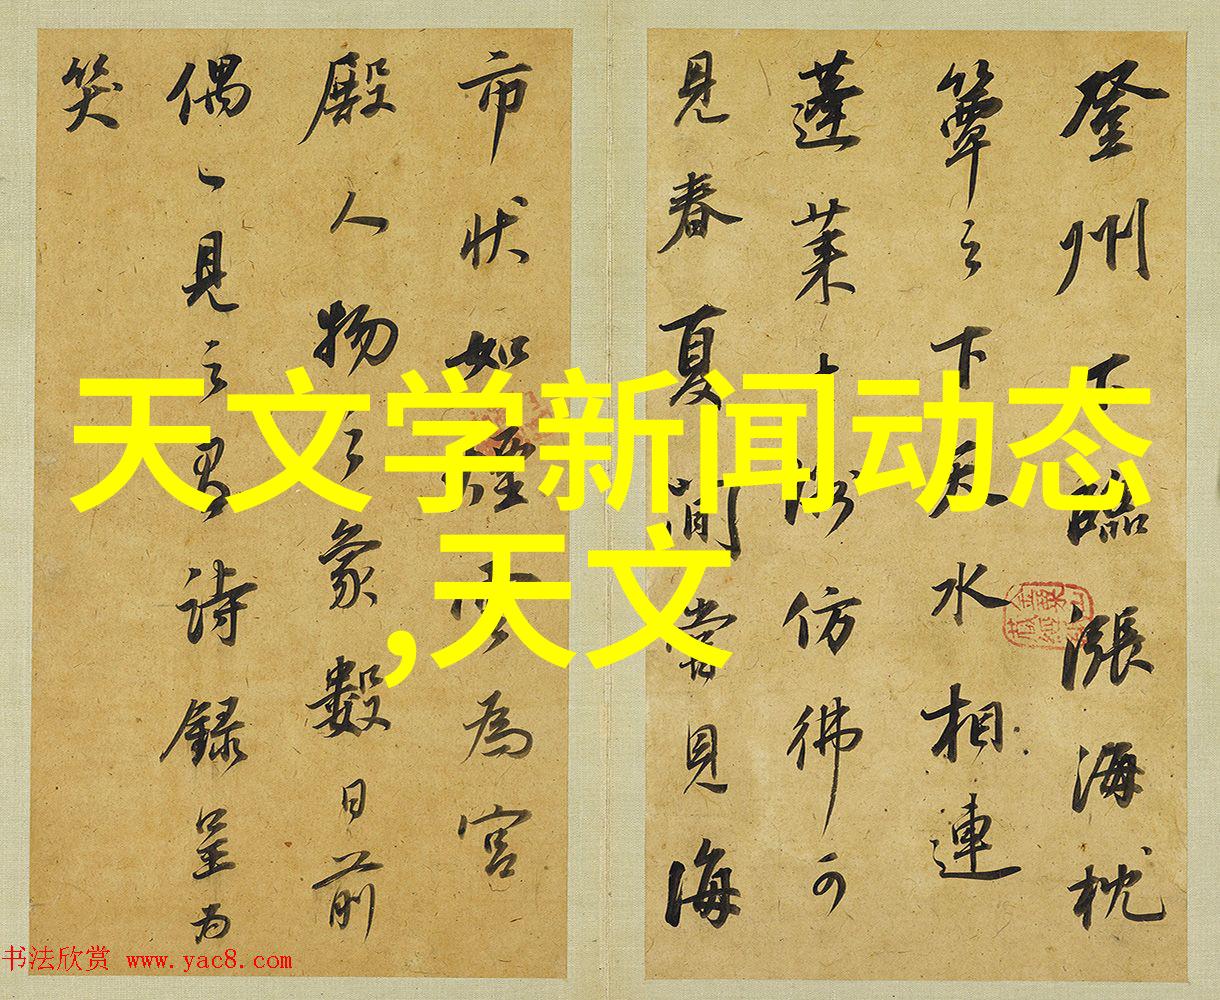 登州下臨漲海枕
簟之下天水相連
蓬萊㠀彷彿可
見春夏間常見海
市狀如煙雲為宮
殿人物之象數日前
偶一見之有詩錄呈為
笑
天文学新闻动态
,天文
书法欣赏 www.yac8.com